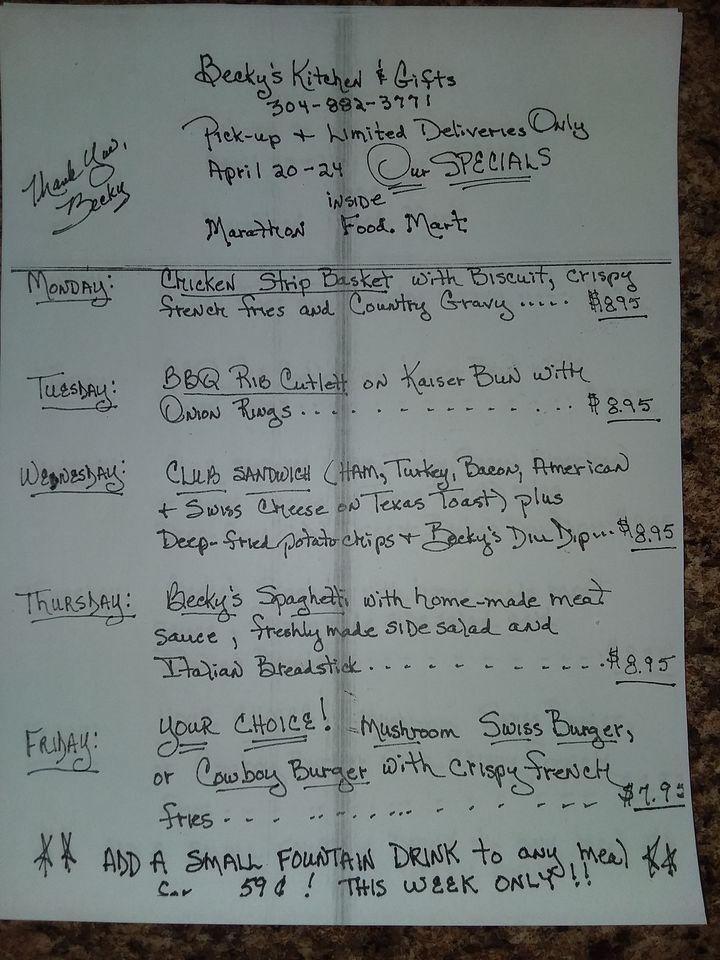 Becky's Kitchen & Gifts
304-882-3771
Pick-up + Limited Deliveries Only
April 20-24 Our SPECIALS
inside
Marathon Food Mart
Thank You,
Becky
MONDAY: Chicken Strip Basket with Biscuit, crispy
french fries and Country Gravy ..... $8.95
TUESDAY: BBQ Rib Cutlett on Kaiser Bun with
Onion Rings .............. $8.95
WEDNESDAY: CLUB SANDWICH (HAM, Turkey, Bacon, American
+ Swiss Cheese on Texas Toast) plus
Deep-fried potato chips + Becky's Dill Dip... $8.95
THURSDAY: Becky's Spaghetti with home-made meat
sauce, freshly made side salad and
Italian Breadstick ............ $8.95
FRIDAY: YOUR CHOICE! Mushroom Swiss Burger,
or Cowboy Burger with crispy french
fries .............. $7.95
** ADD A SMALL FOUNTAIN DRINK to any meal **
for 59¢! THIS WEEK ONLY!!